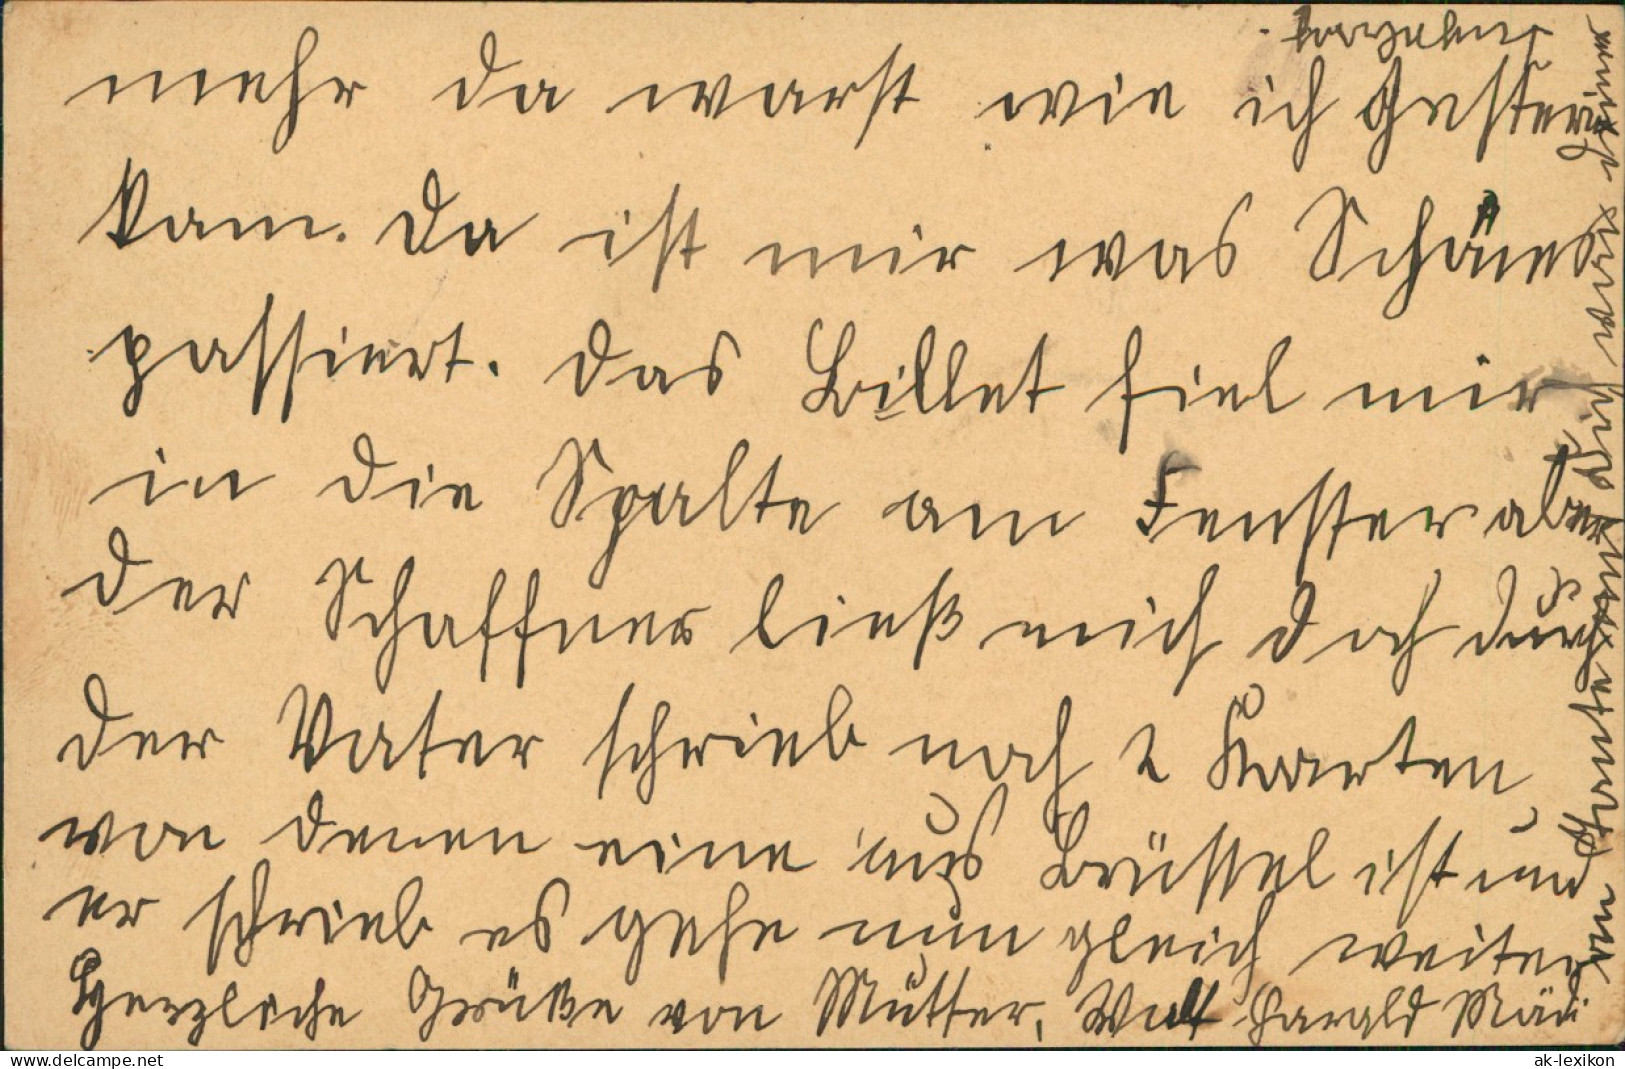 mehr da warst wie ich Gestern
kam. Da ist mir was Schönes
passiert. Das Billet fiel mir
in die Spalte am Fenster aber
der Schaffner ließ mich doch durch
der Vater schrieb noch 2 Karten
von denen eine aus Brüssel ist und
er schrieb es gehe nun gleich weiter
Herzliche Grüße von Mutter, Wulf Harald Mädi
delcampe.net
ak-lexikon